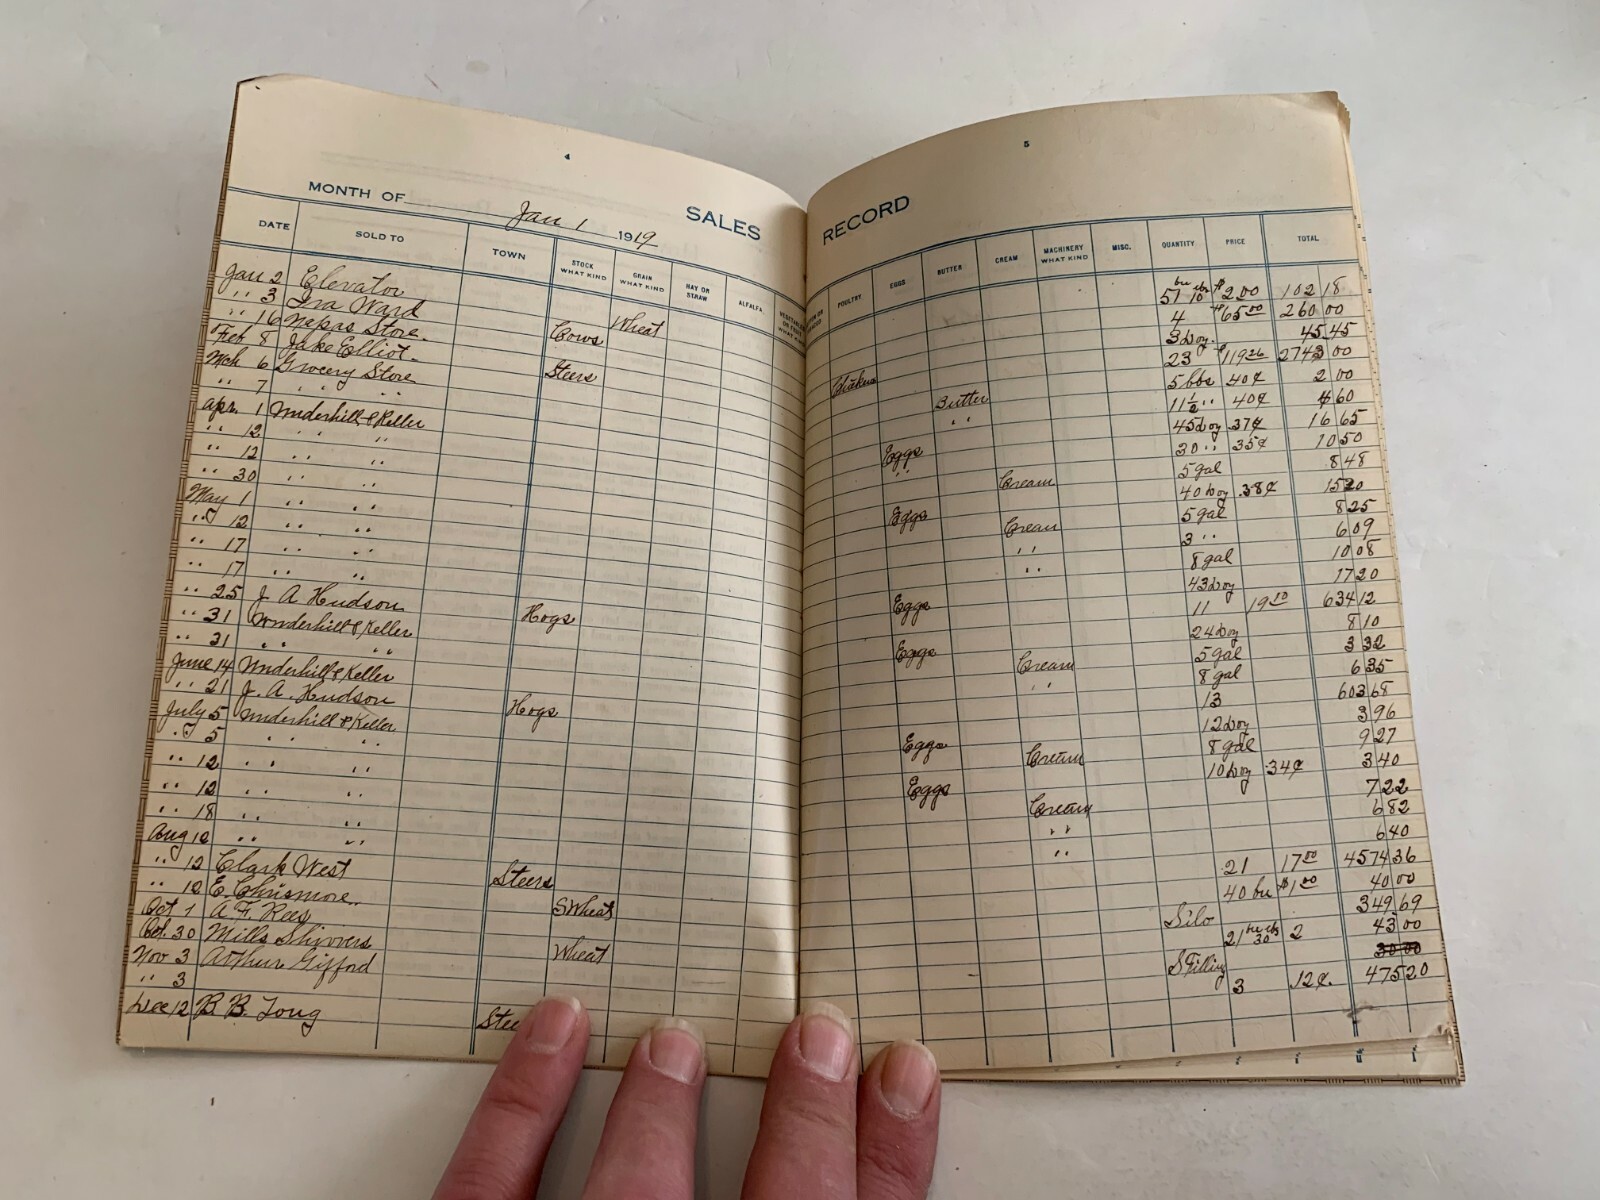 4
MONTH OF Jan 1 1919 SALES
DATE SOLD TO TOWN STOCK WHAT KIND GRAIN WHAT KIND HAY OR STRAW ALFALFA
Jan 2 Elevator Wheat
" 3 Ira Ward Cows
" 16 Store
Feb 8 Jake Elliot Steers
Mch 6 Grocery Store
" 7 " "
Apr. 1 Underhill & Keller
" 12 " "
" 12 " "
" 30 " "
May 1 " "
" 12 " "
" 17 " "
" 17 " "
" 25 J A Hudson Hogs
" 31 Underhill & Keller
" 31 " "
June 14 Underhill & Keller
" 21 J. A. Hudson Hogs
July 5 Underhill & Keller
" 5 " "
" 12 " "
" 12 " "
" 18 " "
Aug 12 " "
" 12 Clark West Steers
" 12 E. Chrismore S Wheat
Oct 1 A. F. Rees
Oct. 30 Mills Shivvers Wheat
Nov 3 Arthur Gifford
" 3
Dec 12 B B. Long Stee
5
RECORD
POULTRY EGGS BUTTER CREAM MACHINERY WHAT KIND MISC. QUANTITY PRICE TOTAL
51 bu 10 lbs $2.00 102 18
4 $65 00 260 00
3 doz. 45.45
23 $119 26 2743 00
Butter 5 lbs 40¢ 2 00
" 11 1/2 " 40¢ 4 60
Eggs 45 doz 37¢ 16 65
" 30 " 35¢ 10 50
Cream 5 gal 8 48
Eggs 40 doz .38¢ 15 20
Cream 5 gal 8 25
" 3 " 6 09
" 8 gal 10 08
Eggs 43 doz 17 20
11 19 10 634 12
Eggs 24 doz 8 10
Cream 5 gal 3 32
" 8 gal 6 35
13 603 68
Eggs 12 doz 3 96
Cream 8 gal 9 27
Eggs 10 doz .34¢ 3 40
Cream 7 22
" 6 82
" 6 40
21 17 00 4574 36
40 bu $1 00 40 00
Silo 349 69
21 bu 30 lbs 2 43 00
S Filling 30 00
3 .12¢. 475 20